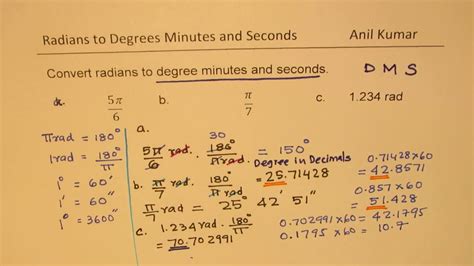 Radians to Degrees Minutes and Seconds Anil Kumar
Convert radians to degree minutes and seconds. D M S
a. 5π/6 b. π/7 c. 1.234 rad
πrad = 180°
1rad = 180°/π
1° = 60'
1' = 60"
1° = 3600"
a.
5π/6 rad . 180°/π rad = 150°
30
Degree in Decimals
b. π/7 rad . 180°/π rad = 25.71428
π/7 rad = 25° 42' 51"
c. 1.234 rad . 180°/π rad
= 70.702991
0.71428x60
= 42.8571
0.857x60
= 51.428
0.702991x60
= 42.1795
0.1795x60 = 10.7